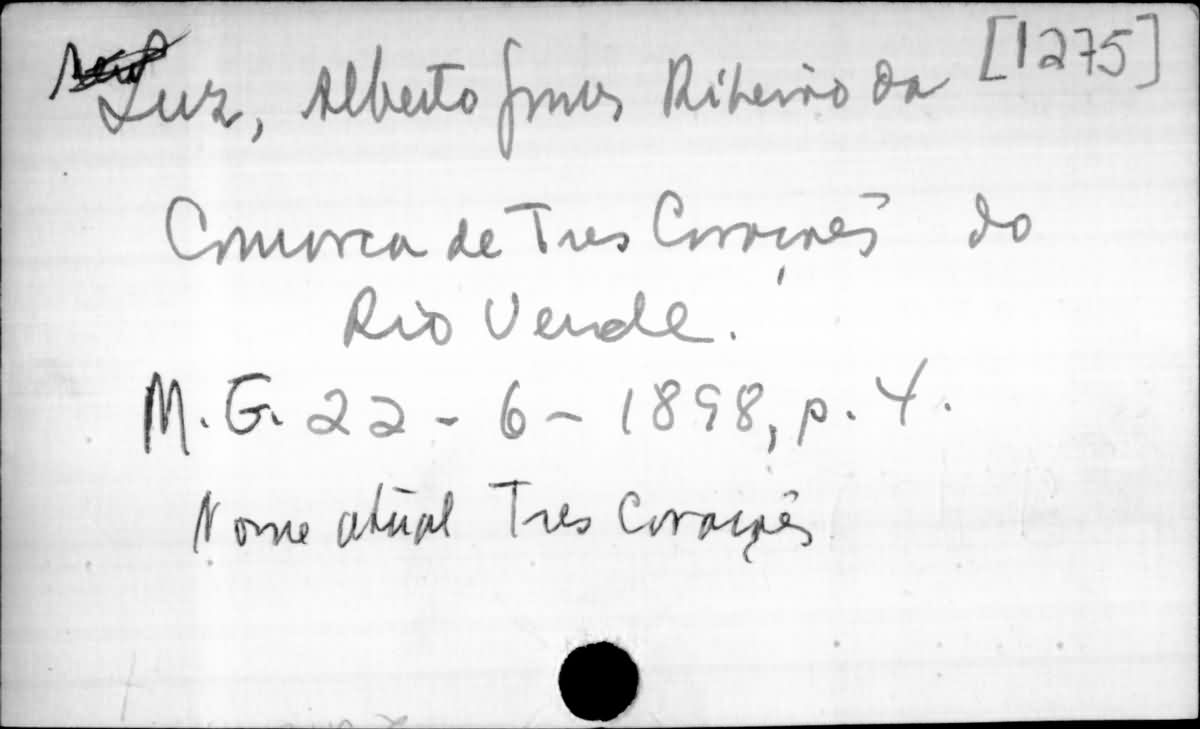 Luz, Alberto Gomes Ribeiro da [1275]
Comarca de Tres Corações do
Rio Verde.
M. G. 22-6-1898, p. 4.
Nome atual Tres Corações